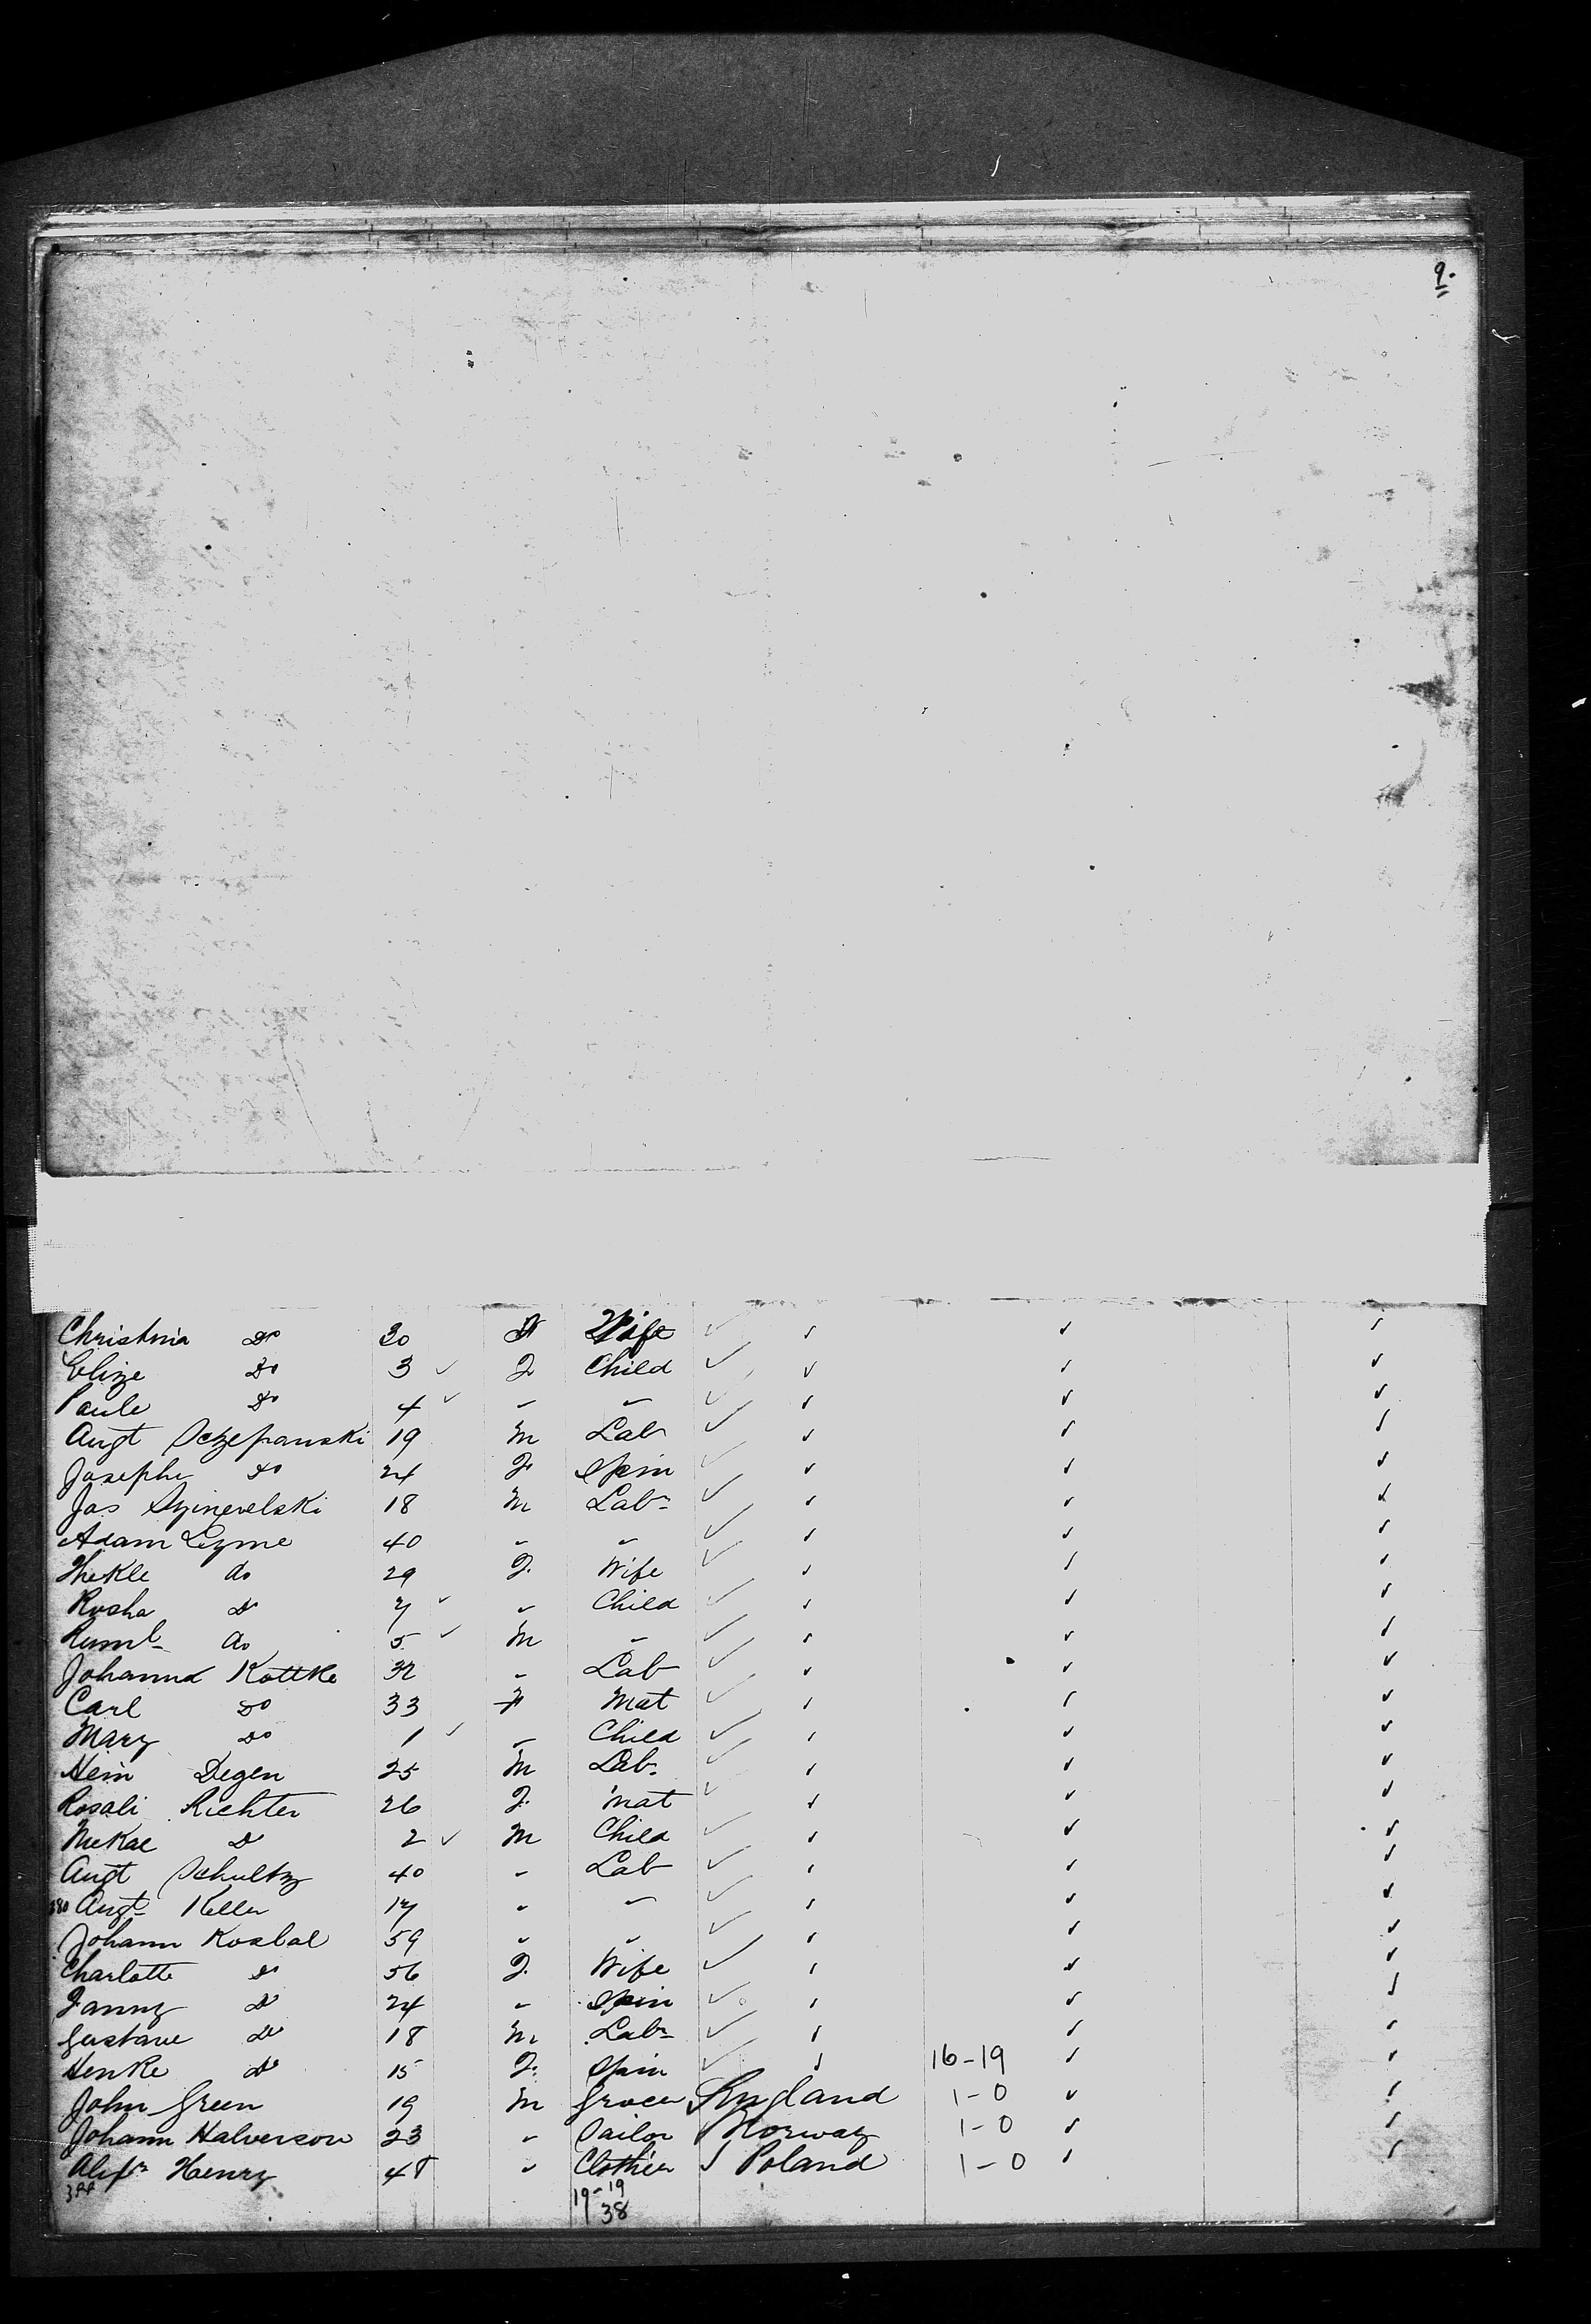 9.
Christina Do 30 F Wife
Elize Do 3 F Child
Paule Do 4 " "
Augt Sczepanski 19 M Lab
Josephe Do 24 F Spin
Jos 18 M Labr
Adam Lyme 40 " "
Thekle do 29 F. Wife
Rosha Do 7 " Child
do 5 M "
Johannd Kottke 32 " Lab
Carl Do 33 F Mat
Mary Do 1 " Child
Hein Degen 25 M Lab.
Rosali Richter 26 F. Mat
Do 2 M Child
Augt Schultz 40 " Lab
380 Augt Keller 17 " "
Johann Kosbal 59 " "
Charlotte Do 56 F. Wife
Fanny Do 24 " Spin
Gustave Do 18 M Labr
Henke Do 15 F. Spin 16-19
John Green 19 M Grocer England 1-0
Johann Halverson 23 " Sailor Norway 1-0
Alexr Henry 48 " Clothier Poland 1-0
19-19
38